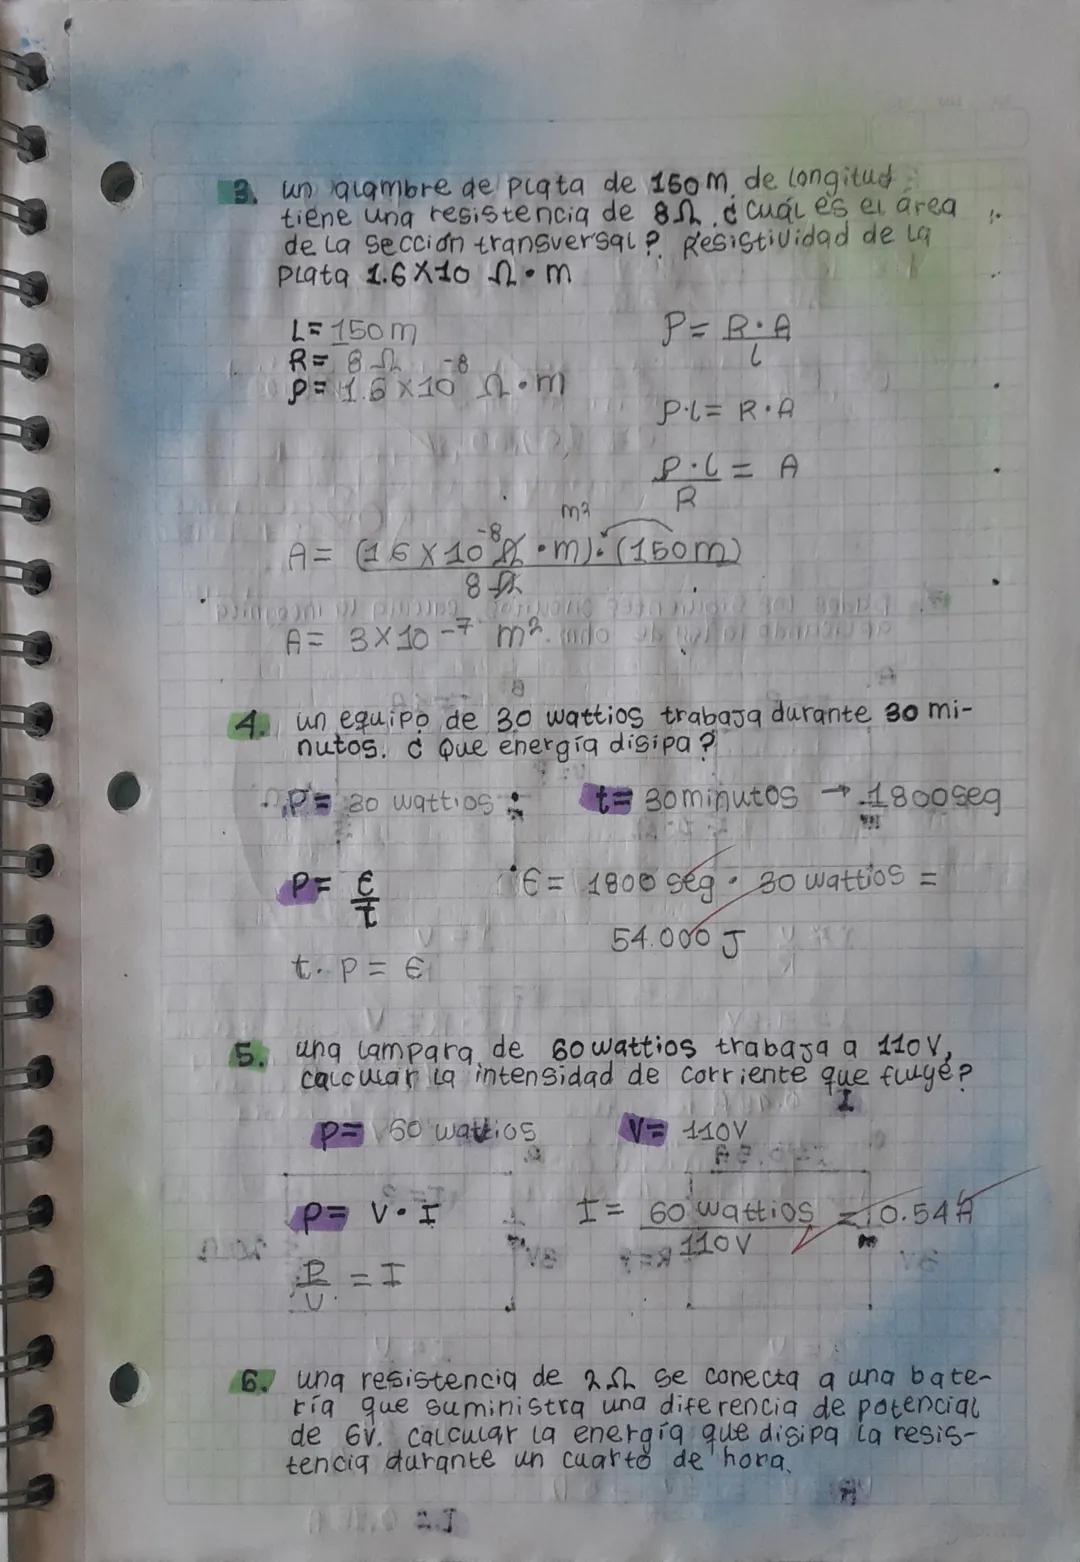 3. un alambre de plata de 150 m de longitud
tiene una resistencia de 8Ω. ¿cuál es el área
de la sección transversal?. Resistividad de la
plata 1.6X10 Ω·m
L= 150 m
R= 8 Ω
ρ= 1.6 X10⁻⁸ Ω·m
ρ= R·A / L
ρ·L= R·A
ρ·L / R = A
m²
A= (1.6 X 10⁻⁸ Ω · m)·(150m) / 8 Ω
A= 3X10⁻⁷ m²
4. un equipo de 30 wattios trabaja durante 30 mi-
nutos. ¿ Que energía disipa?
P= 30 wattios
t= 30minutos → 1800seg
P= E / t
E= 1800 seg · 30 wattios =
54.000 J
t. P = E
5. una lampara de 60 wattios trabaja a 110V,
calcular la intensidad de corriente que fluye?
I
P= 60 wattios
V= 110V
P= V·I
I= 60 wattios / 110V = 0.54A
P / V. = I
6. una resistencia de 2Ω se conecta a una bate-
ría que suministra una diferencia de potencial
de 6V. calcular la energía que disipa la resis-
tencia durante un cuarto de hora.